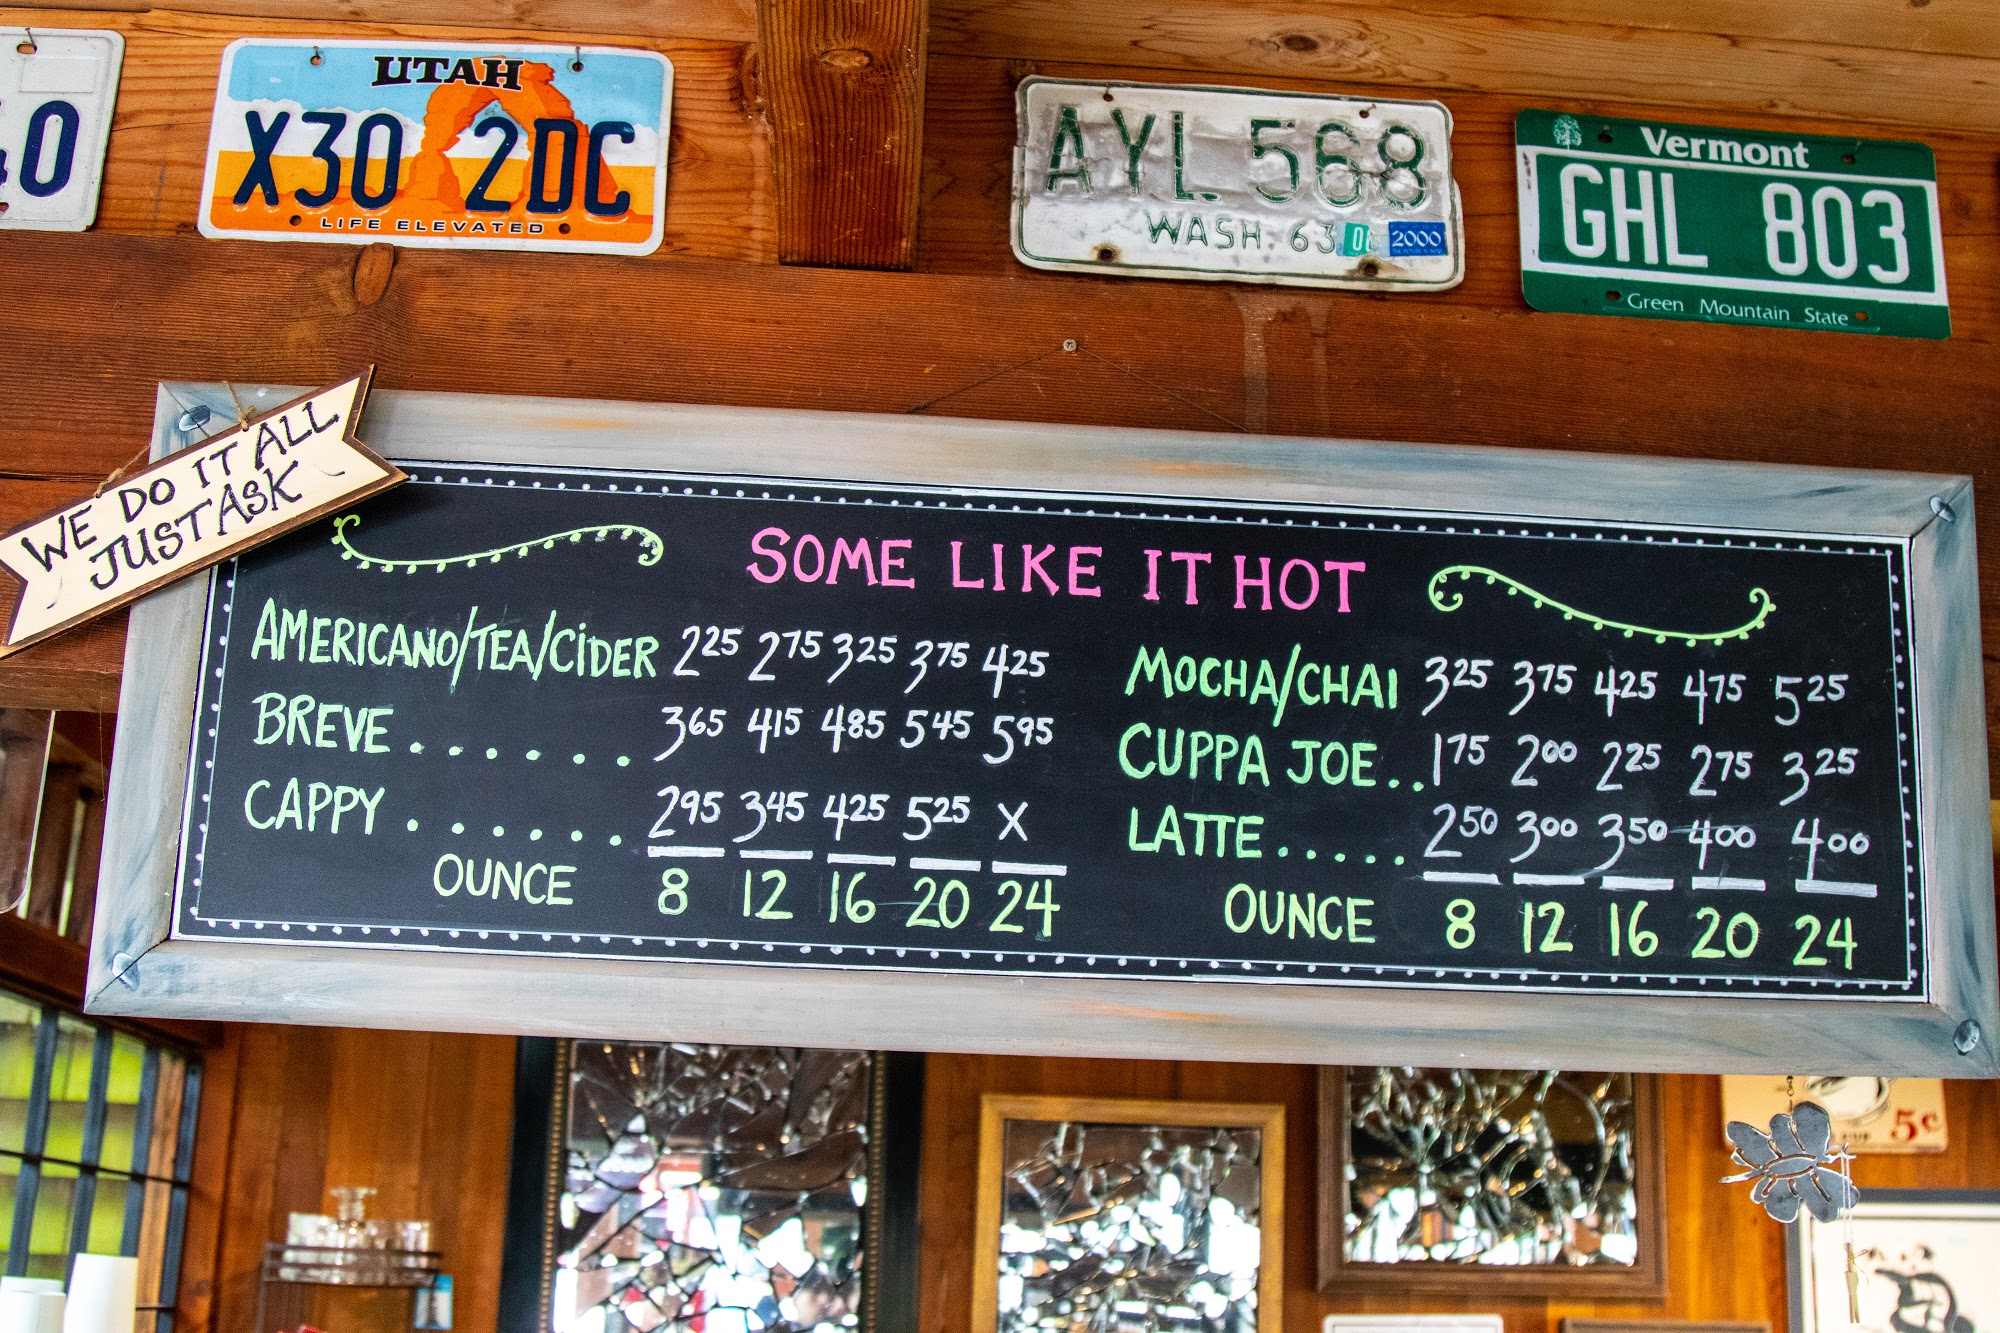 0
UTAH
X30 2DC
LIFE ELEVATED
AYL 568
WASH. 63
2000
Vermont
GHL 803
Green Mountain State
WE DO IT ALL
JUST ASK
SOME LIKE IT HOT
AMERICANO/TEA/CIDER 225 275 325 375 425
BREVE ...... 365 415 485 545 595
CAPPY ...... 295 345 425 525 X
OUNCE 8 12 16 20 24
MOCHA/CHAI 325 375 425 475 525
CUPPA JOE.. 175 200 225 275 325
LATTE..... 250 300 350 400 400
OUNCE 8 12 16 20 24
5¢